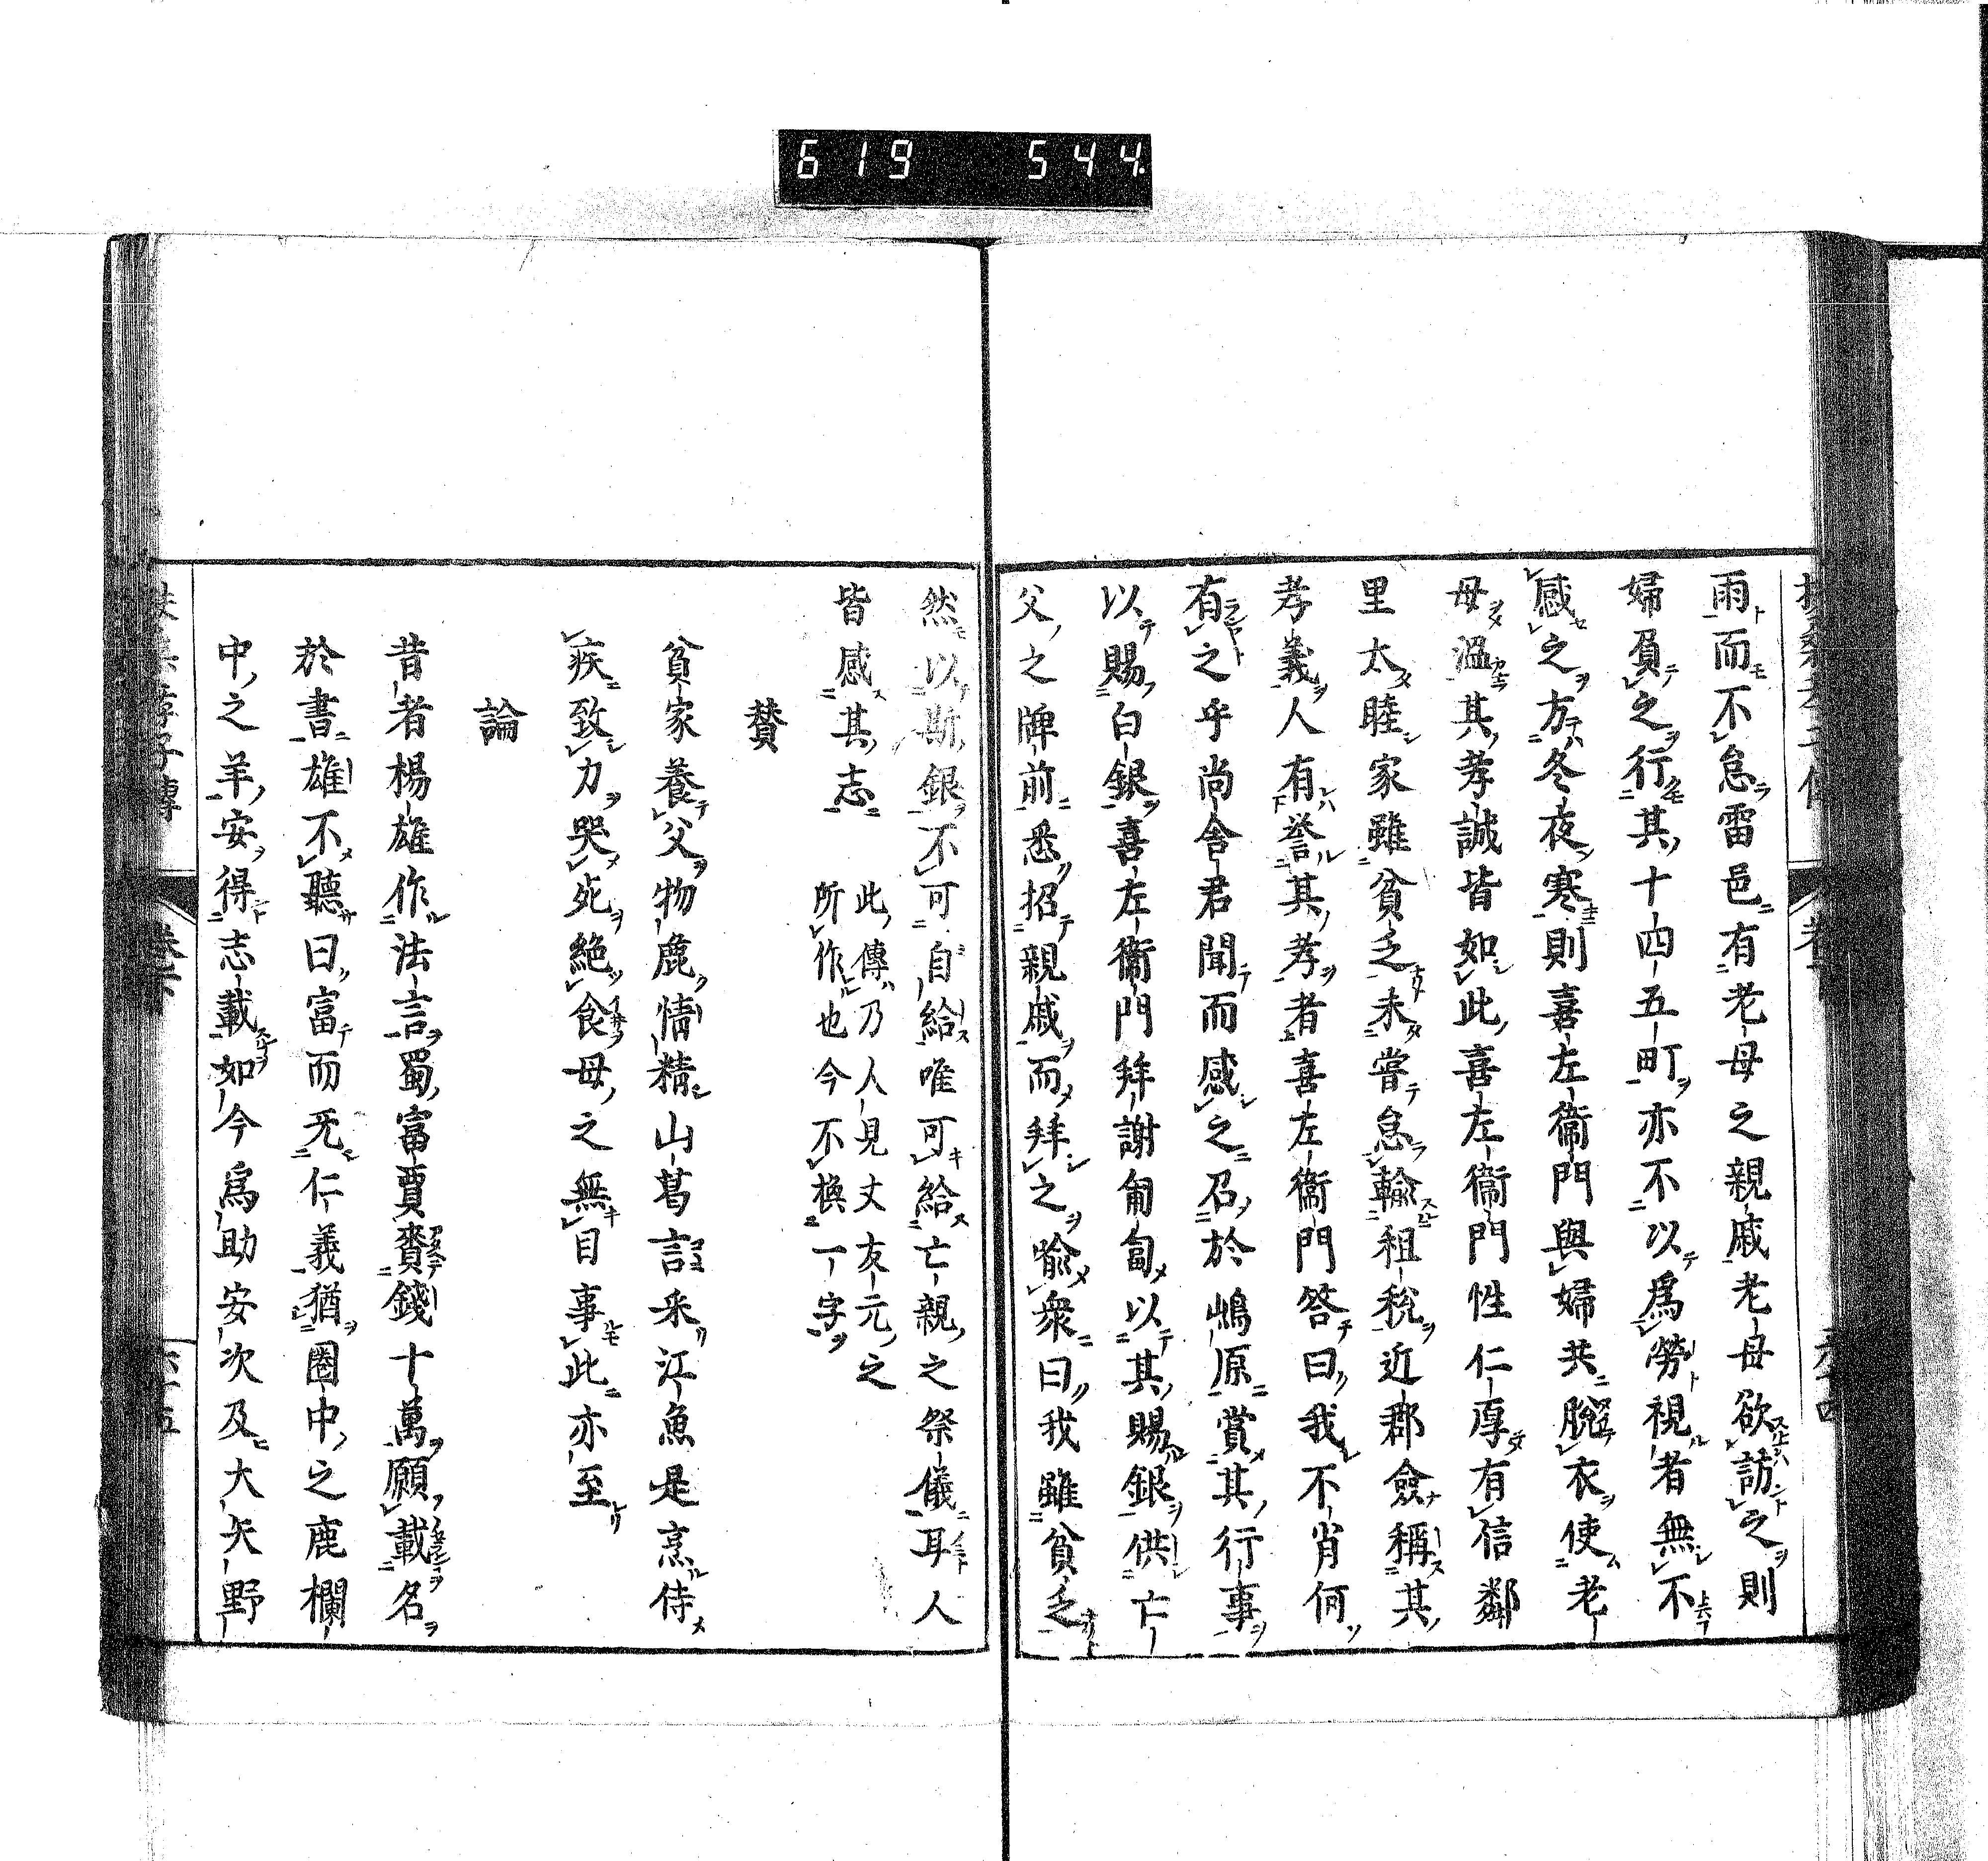 619 544
雨而不怠雷邑有老母之親戚老母欲訪之則
婦負之行其十四五町亦不以爲勞視者無不
感之方冬夜寒則喜左衞門與婦共脫衣使老
母溫其孝誠皆如此喜左衞門性仁厚有信鄰
里太睦家雖貧乏未嘗怠輸租稅近郡僉稱其
孝義人有譽其孝者喜左衞門答曰我不肖何
有之乎尚舍君聞而感之召於嶋原賞其行事
以賜白銀喜左衞門拜謝匍匐以其賜銀供亡
父之牌前悉招親戚而拜之喩衆曰我雖貧乏
然以斯銀不可自給唯可給亡親之祭儀耳人
皆感其志
此傳乃人見丈友元之
所作也今不換一字
贊
貧家養父物鹿情精山葛言采江魚是烹侍
疾致力哭死絕食母之無目事此亦至
論
昔者楊雄作法言蜀富賈賚錢十萬願載名
於書雄不聽曰富而无仁義猶圈中之鹿欄
中之羊安得志載如今爲助安次及大矢野